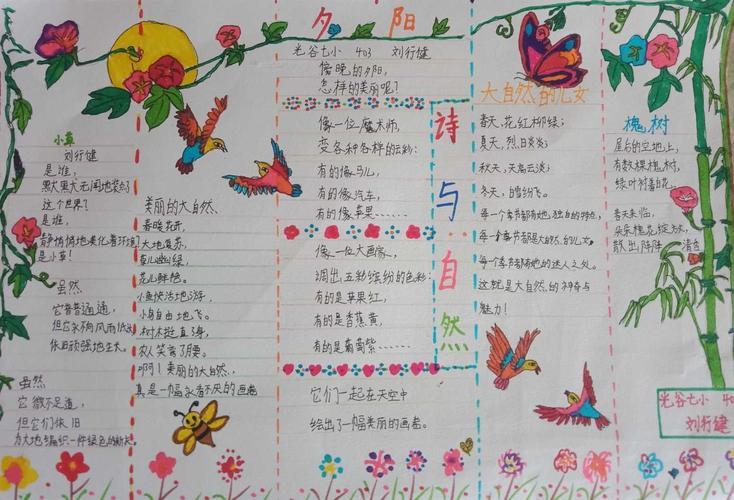 小草
刘行健
是谁，
默大黑大无闻地装点了
这个世界？
是谁，
静悄悄地美化着环境？
是小草！
虽然
它普普通通，
但它永向风雨低头，
依旧顽强地生长。
虽然
它微不足道，
但它们依旧
为大地编织一件绿色的新衣。
美丽的大自然
春暖花开，
大地复苏，
春儿幽绿，
花儿鲜艳。
小鱼快活地游，
小鸟自由地飞。
树木挺直身，
农人笑弯了腰。
啊！美丽的大自然，
真是一幅永看不厌的画卷
夕阳
光谷七小 403 刘行健
傍晚的夕阳，
怎样的美丽呢？
像一位魔术师，
变各种各样的云彩：
有的像马儿，
有的像汽车，
有的像苹果……
像一位大画家，
调出五彩缤纷的色彩：
有的是苹果红，
有的是香蕉黄，
有的是葡萄紫……
它们一起在天空中
绘出了一幅美丽的画卷。
诗与自然
大自然的儿女
春天，花红柳绿；
夏天，烈日炎炎；
秋天，天高云淡；
冬天，白雪纷飞。
每一个季节都有她独自的特点，
每一个季节都是大自然的儿女。
每个季节都有她的迷人之处。
这就是大自然的神奇与
魅力！
槐树
屋后的空地上，
有数棵槐树，
绿叶衬着花。
春天来临，
朵朵槐花绽放，
散出阵阵清香
光谷七小 403
刘行健